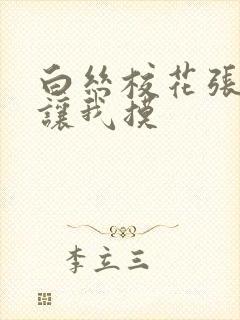 白丝校花張
讓我摸
李立三